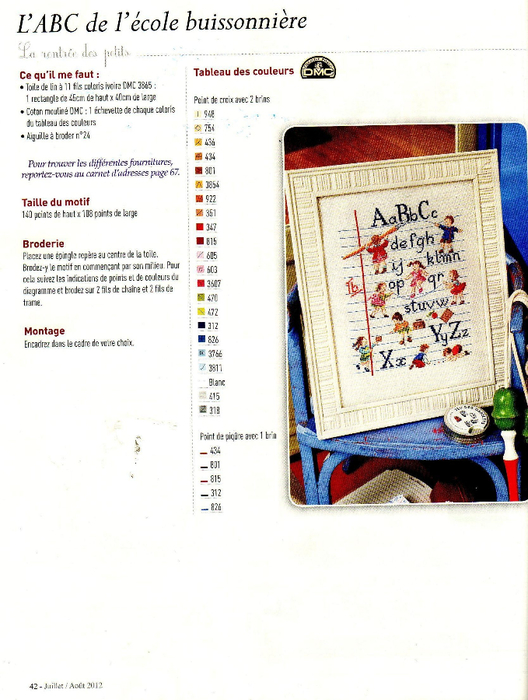 L'ABC de l'école buissonnière
La rentrée des petits
Ce qu'il me faut :
• Toile de lin à 11 fils coloris ivoire DMC 3865 :
1 rectangle de 45cm de haut x 40cm de large
• Coton mouliné DMC : 1 échevette de chaque coloris
du tableau des couleurs
• Aiguille à broder n°24
Pour trouver les différentes fournitures,
reportez-vous au carnet d'adresses page 67.
Taille du motif
140 points de haut x 108 points de large
Broderie
Placez une épingle repère au centre de la toile.
Brodez-y le motif en commençant par son milieu. Pour
cela suivez les indications de points et de couleurs du
diagramme et brodez sur 2 fils de chaîne et 2 fils de
trame.
Montage
Encadrez dans le cadre de votre choix.
Tableau des couleurs
DMC
Point de croix avec 2 brins
948
754
436
434
801
3854
922
351
347
815
605
603
3607
470
472
312
826
3766
3811
Blanc
415
318
Point de piqûre avec 1 brin
434
801
815
312
826
AaBbCc
defgh
ij klmn
op qr
stuvw
YyZz
Xx
42 - Juillet / Août 2012